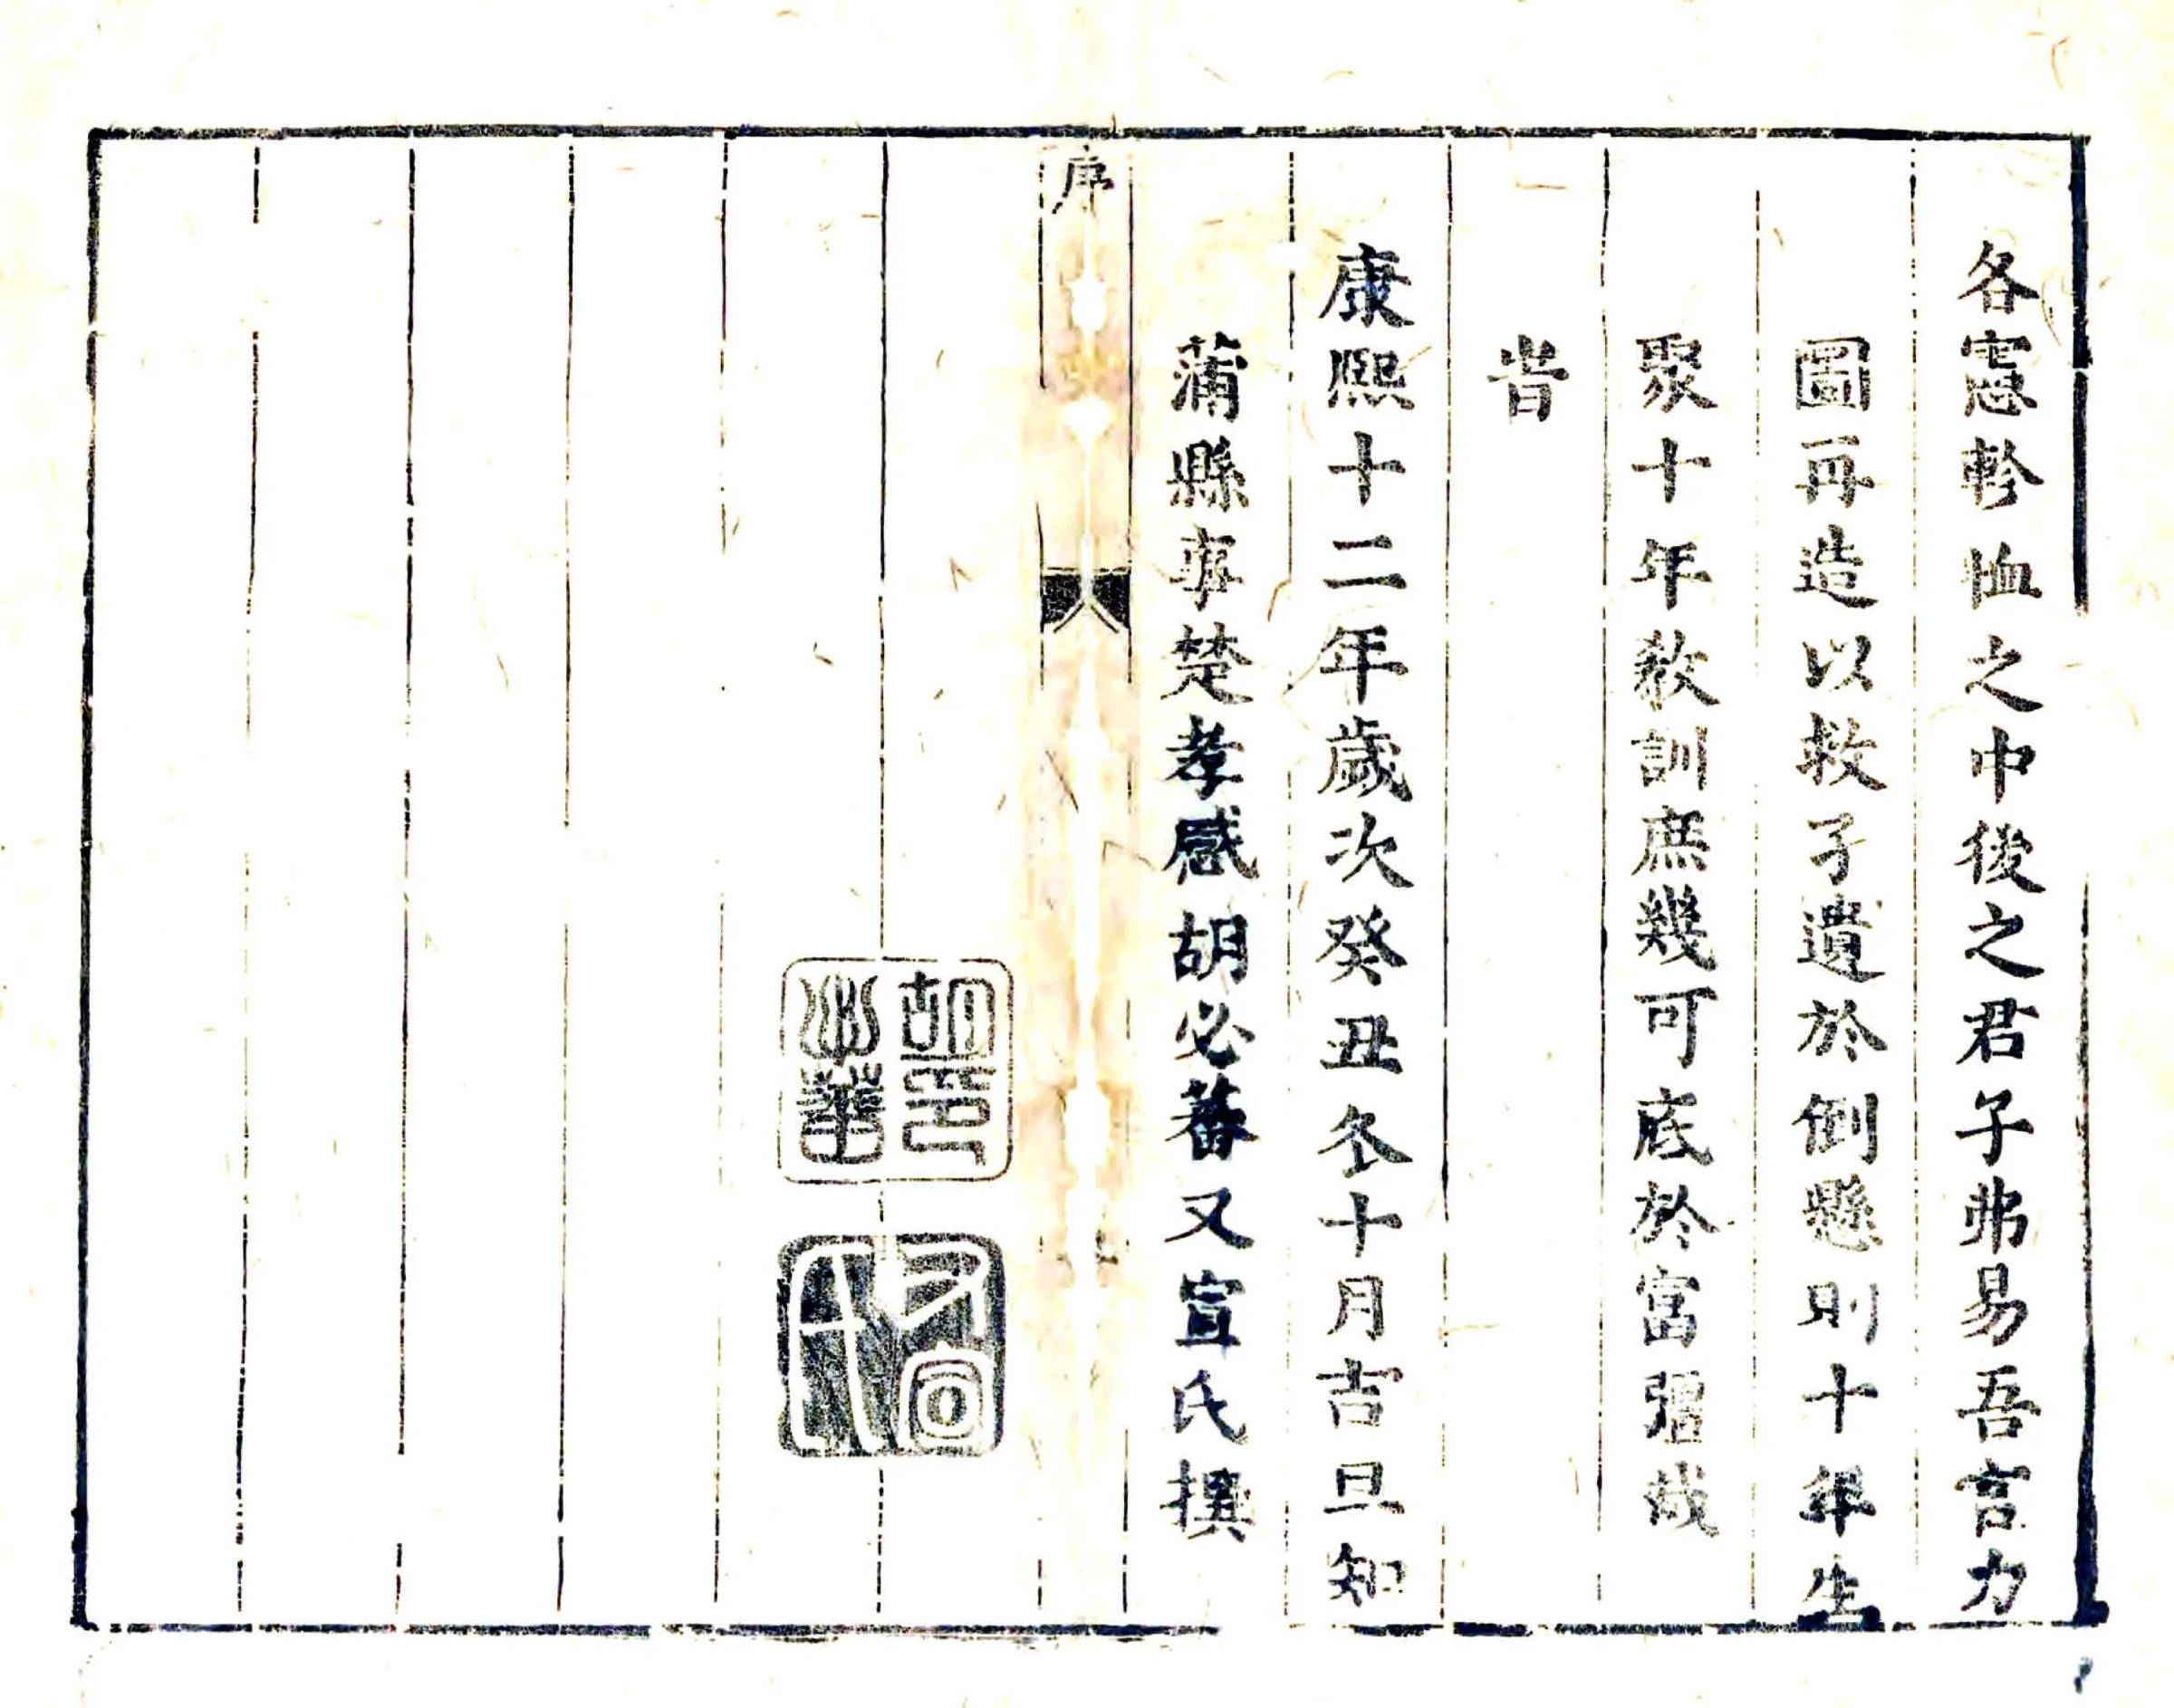 各憲軫恤之中後之君子弗易吾言力
圖再造以救孑遺於倒懸則十年生
聚十年教訓庶幾可底於富彊哉
旹
康熙十二年歲次癸丑冬十月吉旦知
蒲縣事楚孝感胡必蕃又宣氏撰
序
胡印
必蕃
又宣
氏